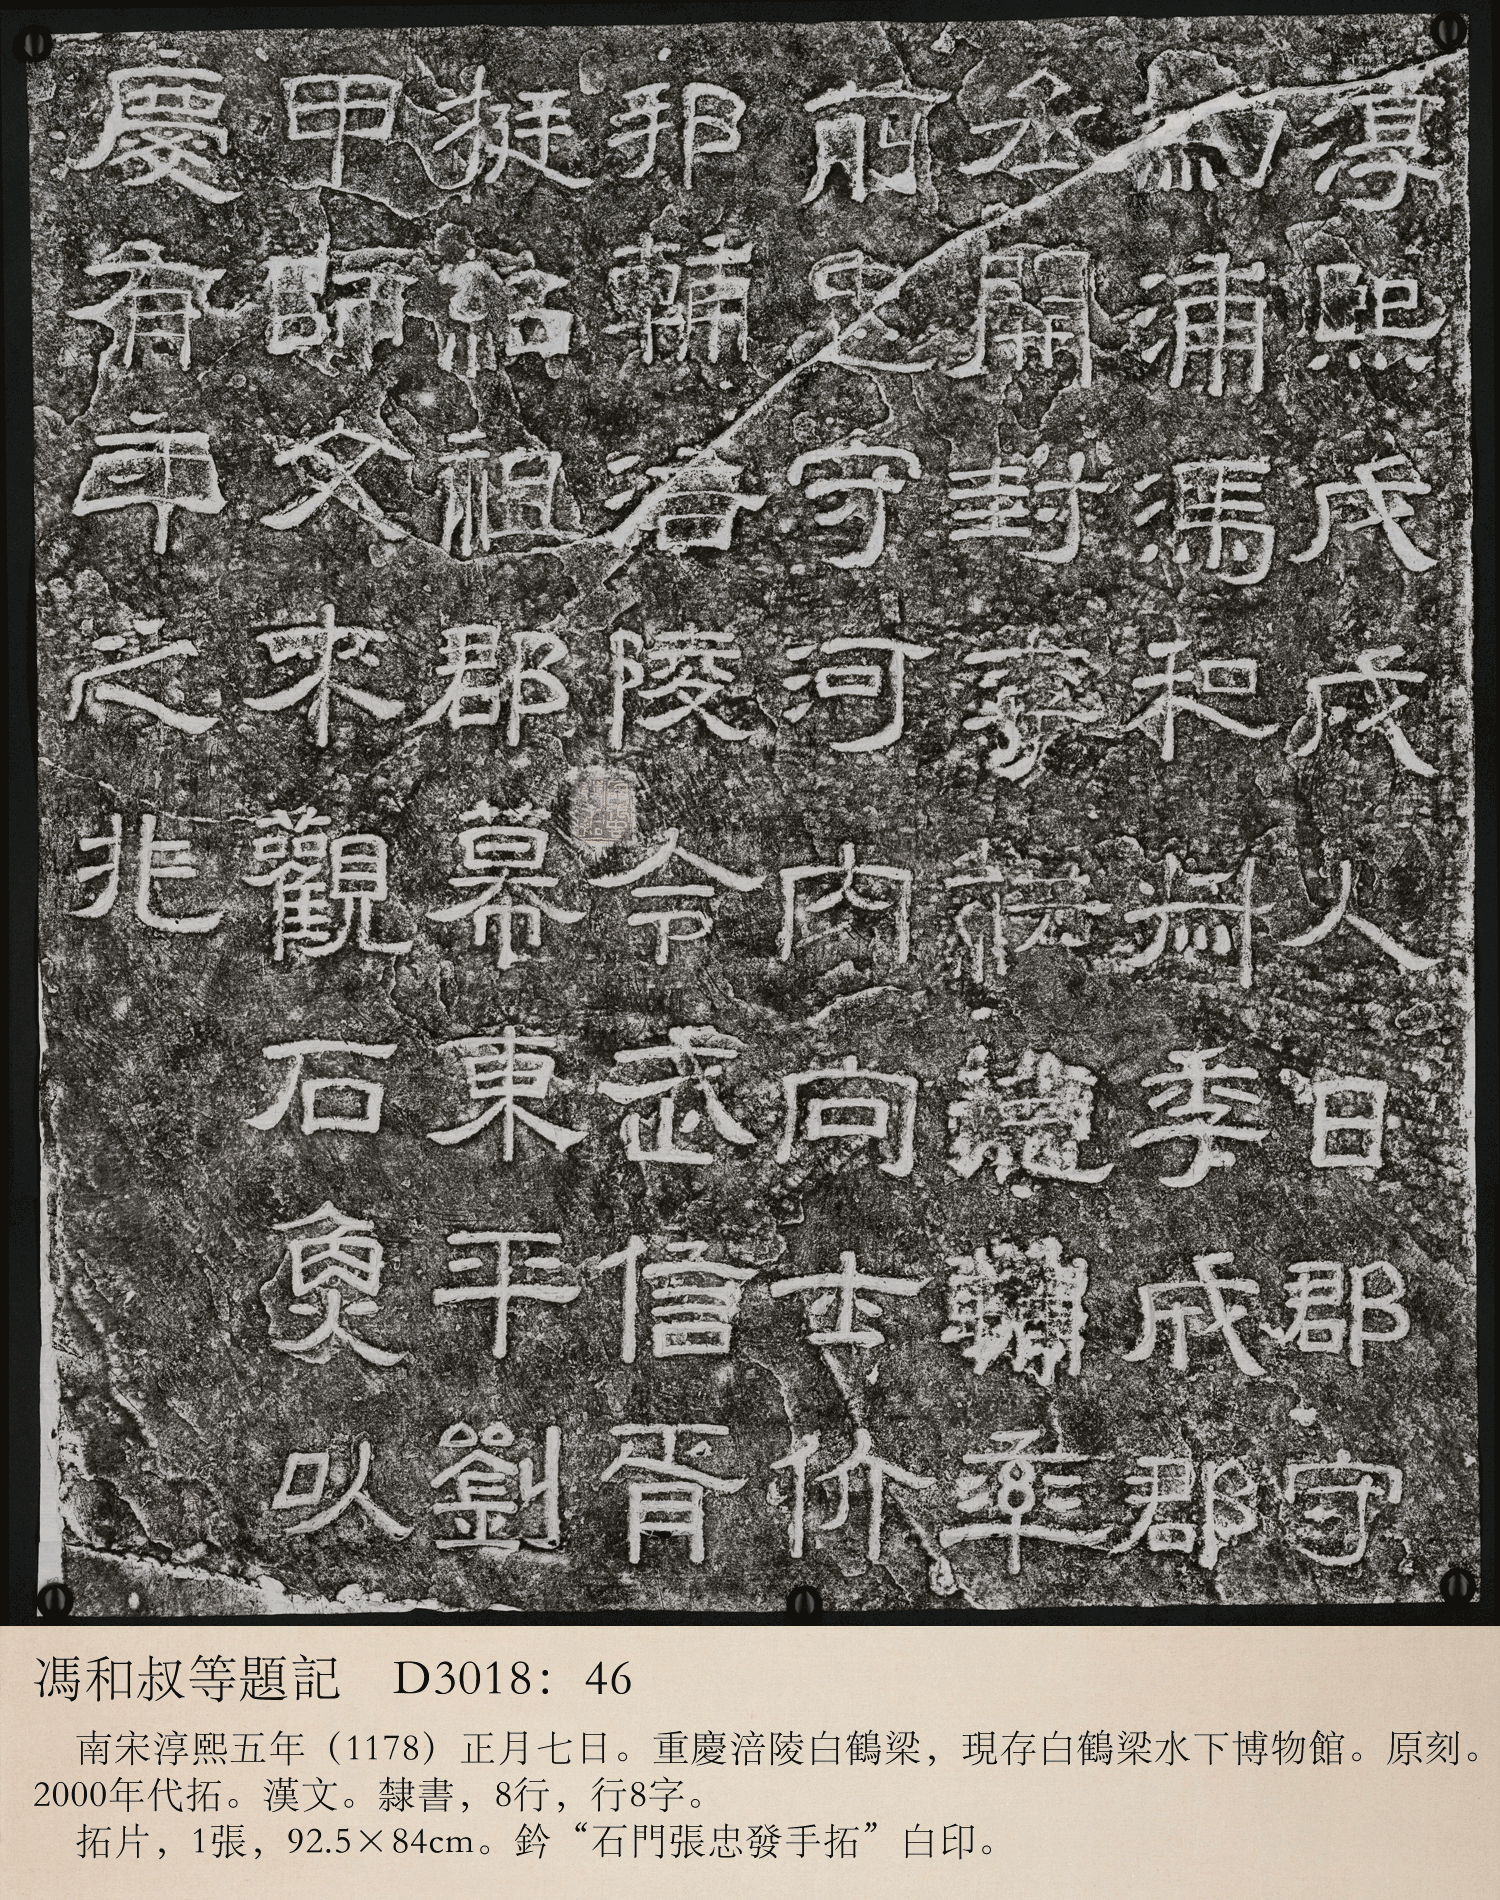 淳熙戊戌人日郡守
劒浦馮和叔季成郡
丞開封率
前忠守河內向士价
邦輔涪陵令武信胥
挺紹祖郡幕東平劉
甲師文來觀石魚以
慶有年之兆
馮和叔等題記　D3018：46
南宋淳熙五年（1178）正月七日。重慶涪陵白鶴梁，現存白鶴梁水下博物館。原刻。
2000年代拓。漢文。隸書，8行，行8字。
拓片，1張，92.5×84cm。鈐“石門張忠發手拓”白印。